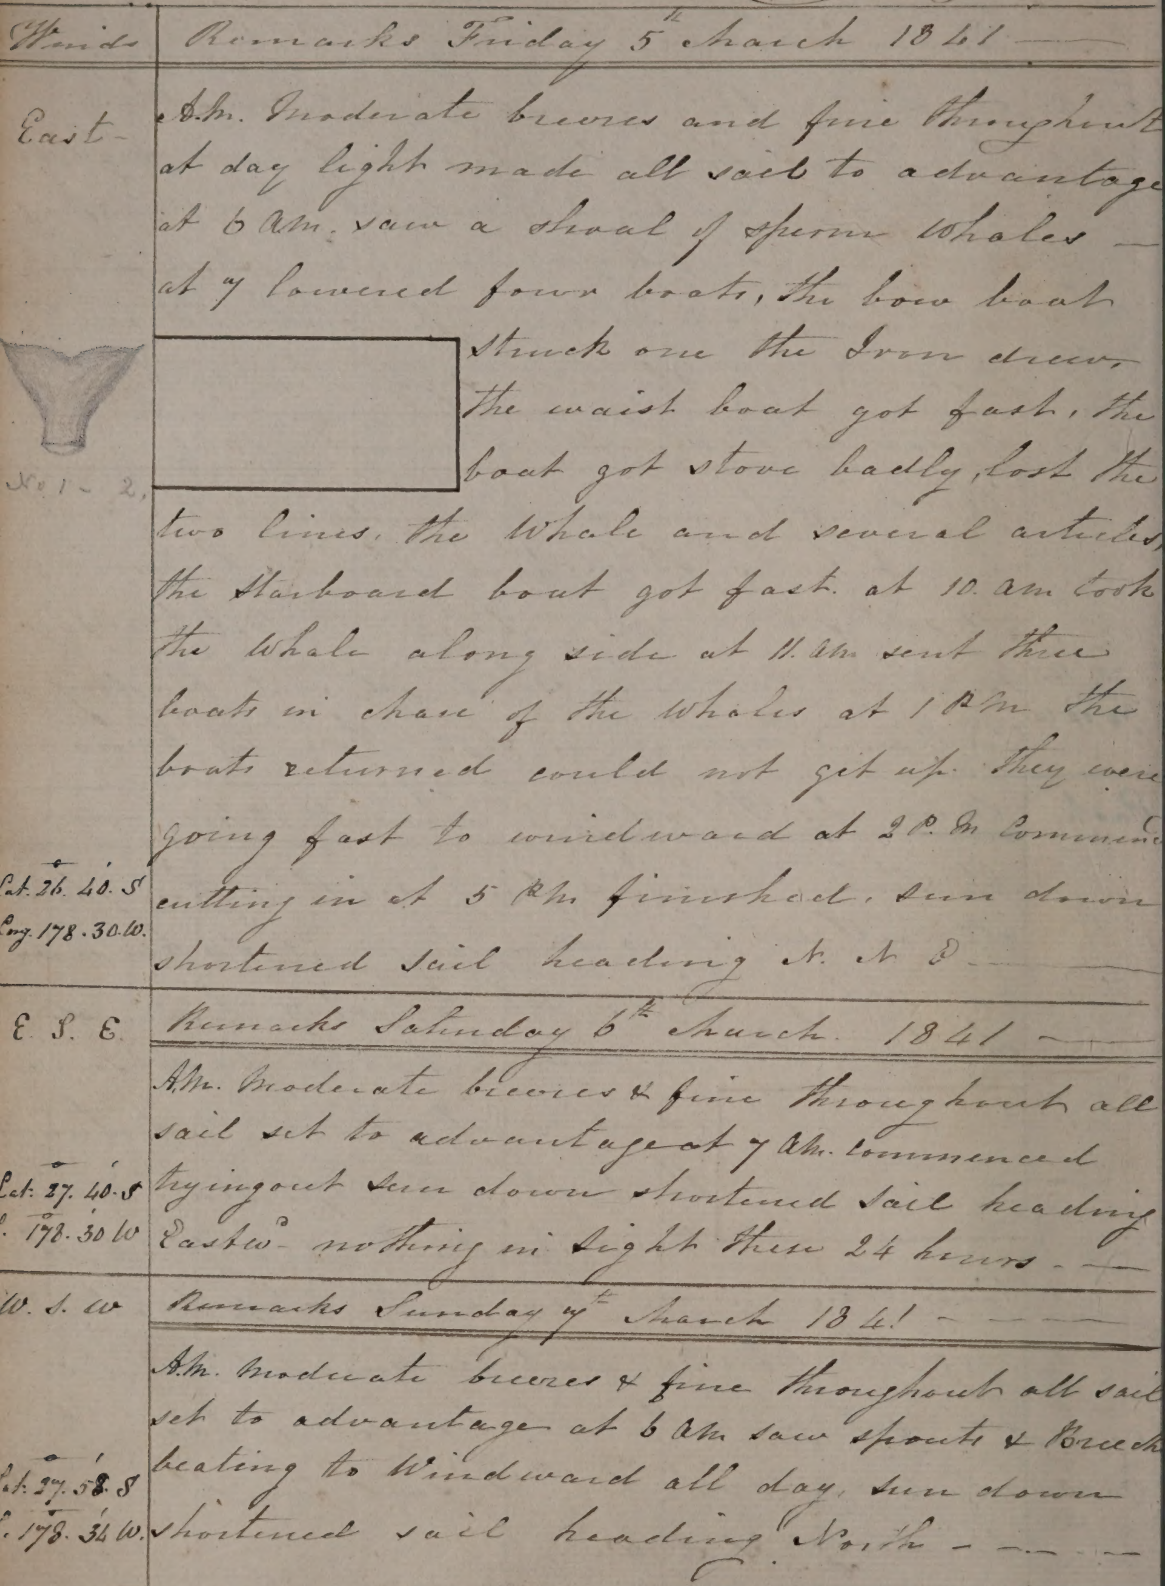 Winds Remarks Friday 5th March 1841
East A.M. Moderate breezes and fine throughout
at day light made all sail to advantage
at 6 Am. saw a shoal of sperm Whales
at 7 lowered four boats, the bow boat
struck one the Iron drew,
the waist boat got fast, the
boat got stove badly, lost the
No 1 - 2,
two lines, the Whale and several articles,
the Starboard boat got fast. at 10. am took
the Whale along side at 11. am sent three
boats in chase of the Whales at 1 P M the
boats returned could not get up. they were
going fast to windward at 2 P. M Commenc
Lat. 26. 40. S cutting in at 5 P M finished. sun down
Long. 178. 30 W. shortened sail heading N. N E
E. S. E. Remarks Saturday 6th March. 1841
A.M. Moderate breezes & fine throughout all
sail set to advantage at 7 Am. commenced
Lat. 27. 40. S trying out sun down shortened sail heading
178. 30 W Eastwd nothing in sight these 24 hours
W. S. W Remarks Sunday 7th March 184!
A.M. Moderate breezes & fine throughout all sail
set to advantage at 6 Am saw spouts & Breech
Lat. 27. 58. S beating to Windward all day, sun down
178. 34 W. shortened sail heading North